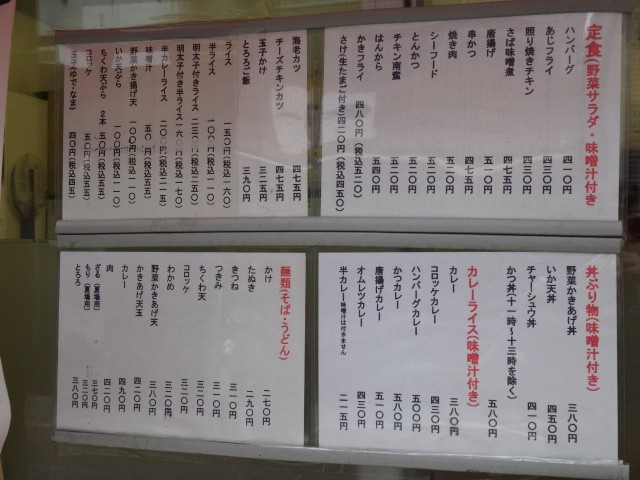 定食(野菜サラダ・味噌汁付き
ハンバーグ 四一〇円
あじフライ 四三〇円
照り焼きチキン 四三〇円
さば味噌煮 四七五円
唐揚げ 五一〇円
串かつ 四七五円
焼き肉 五二〇円
シーフード 五二〇円
とんかつ 五二〇円
チキン南蛮 五二〇円
はんから 五四〇円
かきフライ 四八〇円(税込五二〇
さけ(生たまご付き)四二〇円(税込四五〇)
海老カツ 四七五円
チーズチキンカツ 四七五円
玉子かけ 三二五円
とろろご飯 三九〇円
ライス 一五〇円(税込一六〇)
半ライス
明太子付きライス
明太子付き半ライス
半カレーライス
味噌汁
野菜かき揚げ天
いか天ぷら 一〇〇円(税込一一〇)
ちくわ天ぷら 2本 五〇円(税込五五)
コロッケ 五〇円(税込五五)
玉子(ゆで・なま) 四〇円(税込四五)
丼ぶり物(味噌汁付き)
野菜かきあげ丼 三八〇円
いか天丼 四五〇円
チャーシュウ丼 四一〇円
かつ丼(十一時～十三時を除く) 五八〇円
カレーライス(味噌汁付き)
カレー 三八〇円
コロッケカレー 四三〇円
ハンバーグカレー 五〇〇円
かつカレー 五八〇円
唐揚げカレー 五一〇円
オムレツカレー 四三〇円
半カレー 味噌汁は付きません 二一五円
麺類(そば・うどん)
かけ 二七〇円
たぬき 二九〇円
きつね 三一〇円
つきみ 三一〇円
ちくわ天 三二〇円
コロッケ 三二〇円
わかめ 三二〇円
野菜かきあげ天 三八〇円
かきあげ天玉 四二〇円
カレー 四九〇円
肉 四二〇円
ざる(夏場用) 三七〇円
もり(夏場用) 三二〇円
とろろ 三八〇円